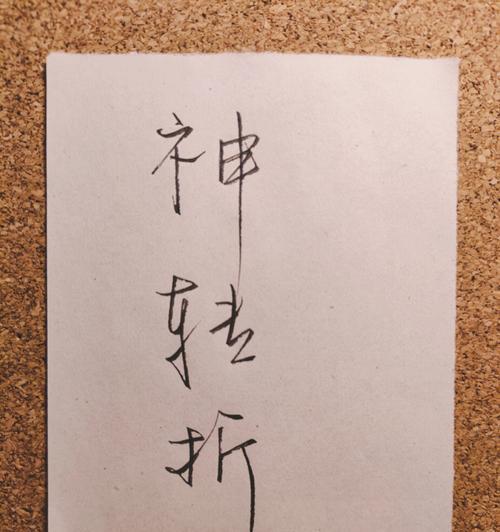 神转折